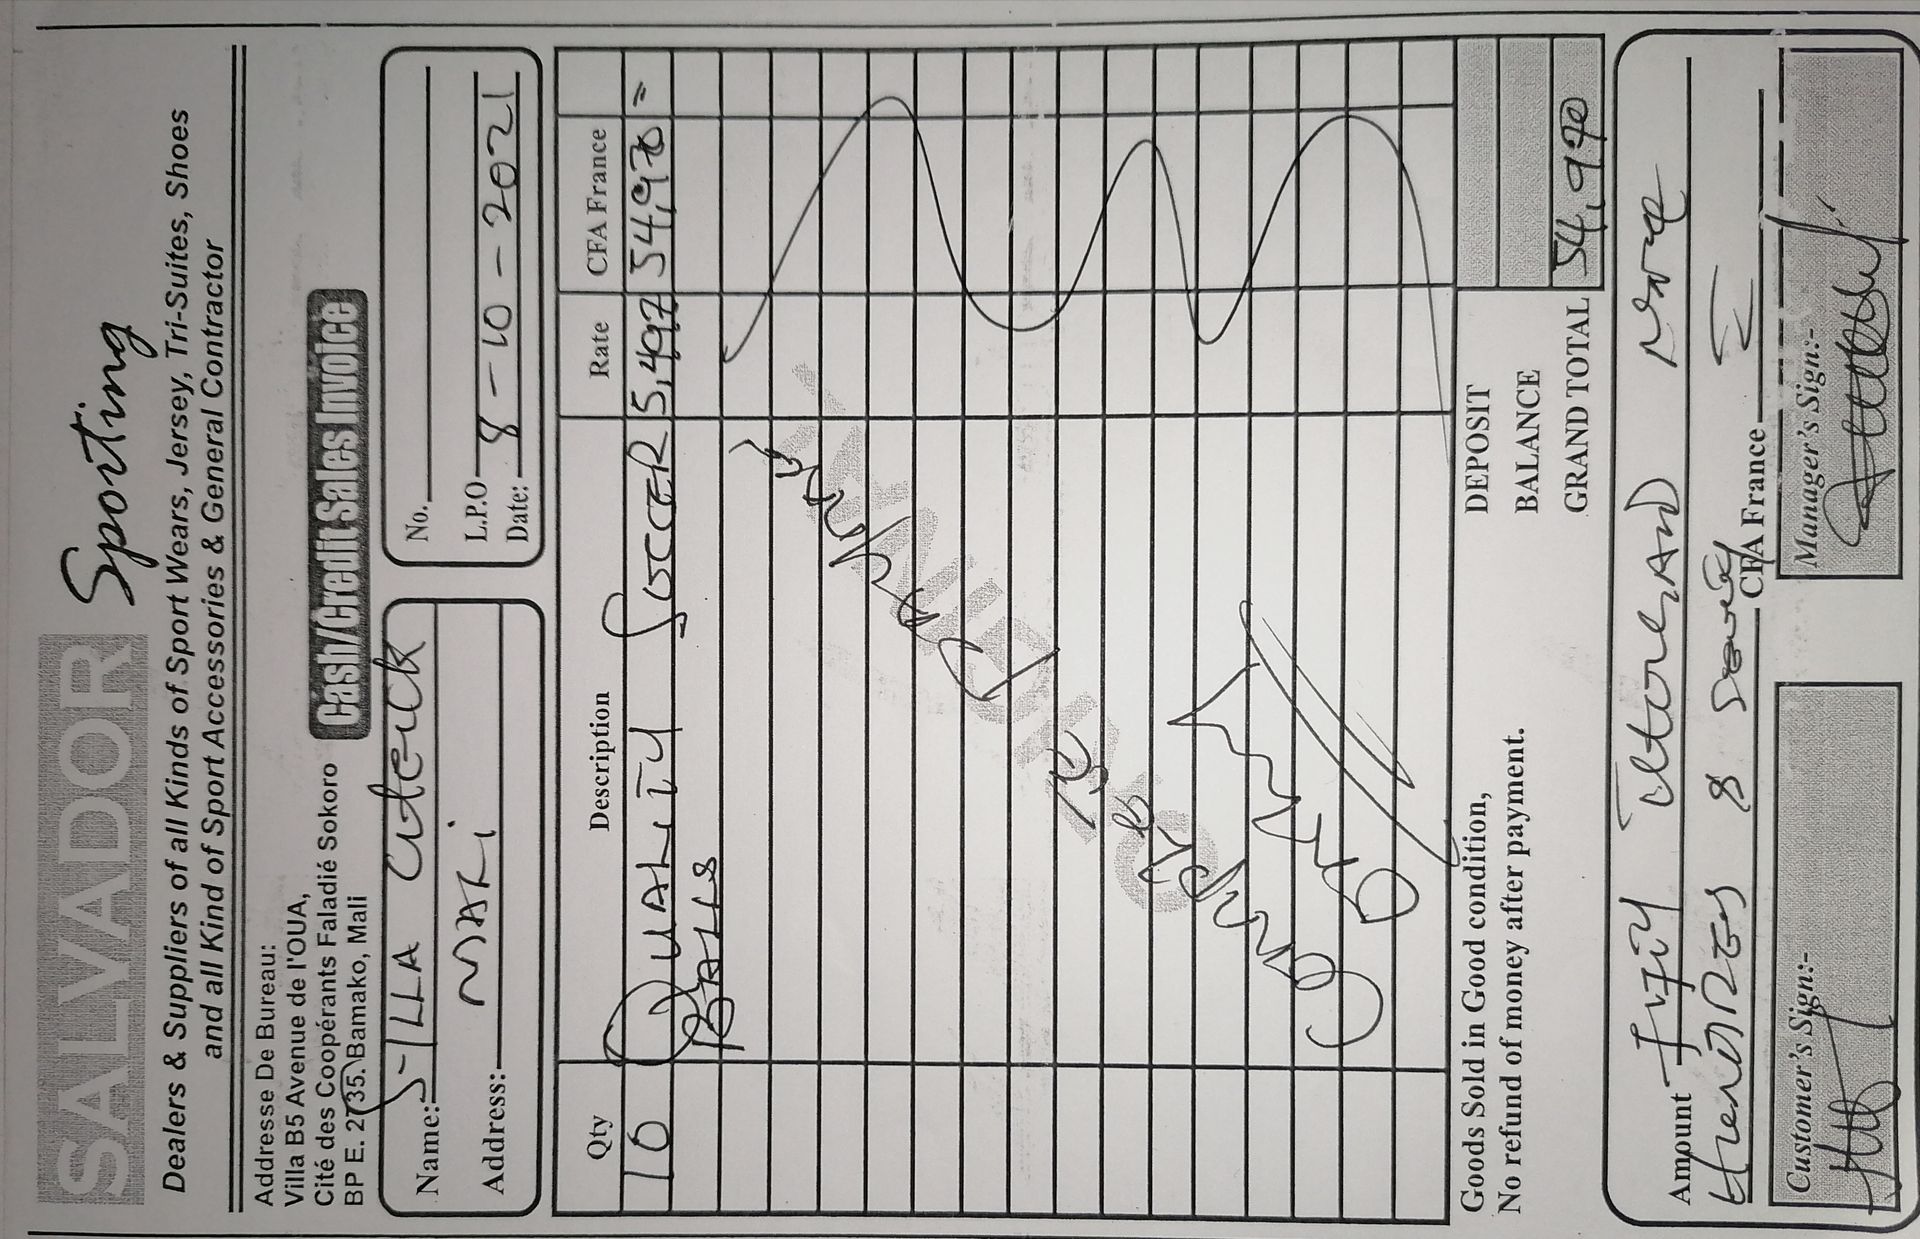 SALVADOR Sporting
Dealers & Suppliers of all Kinds of Sport Wears, Jersey, Tri-Suites, Shoes
and all Kind of Sport Accessories & General Contractor
Addresse De Bureau:
Villa B5 Avenue de l'OUA,
Cité des Coopérants Faladié Sokoro
BP E. 2735. Bamako, Mali
Cash/Credit Sales Invoice
Name: SILLA CHEICK
Address: MALI
No.
L.P.O
Date: 8-10-2021
Qty Description Rate CFA France
10 QUALITY SOCCER 5,497 54,970 =
BALLS
Goods Sold in Good condition,
No refund of money after payment.
DEPOSIT
BALANCE
GRAND TOTAL 54,970
Amount FIFTY THOUSAND NINE
HUNDRED & SEVENTY
CFA France
Customer's Sign:-
Manager's Sign:-